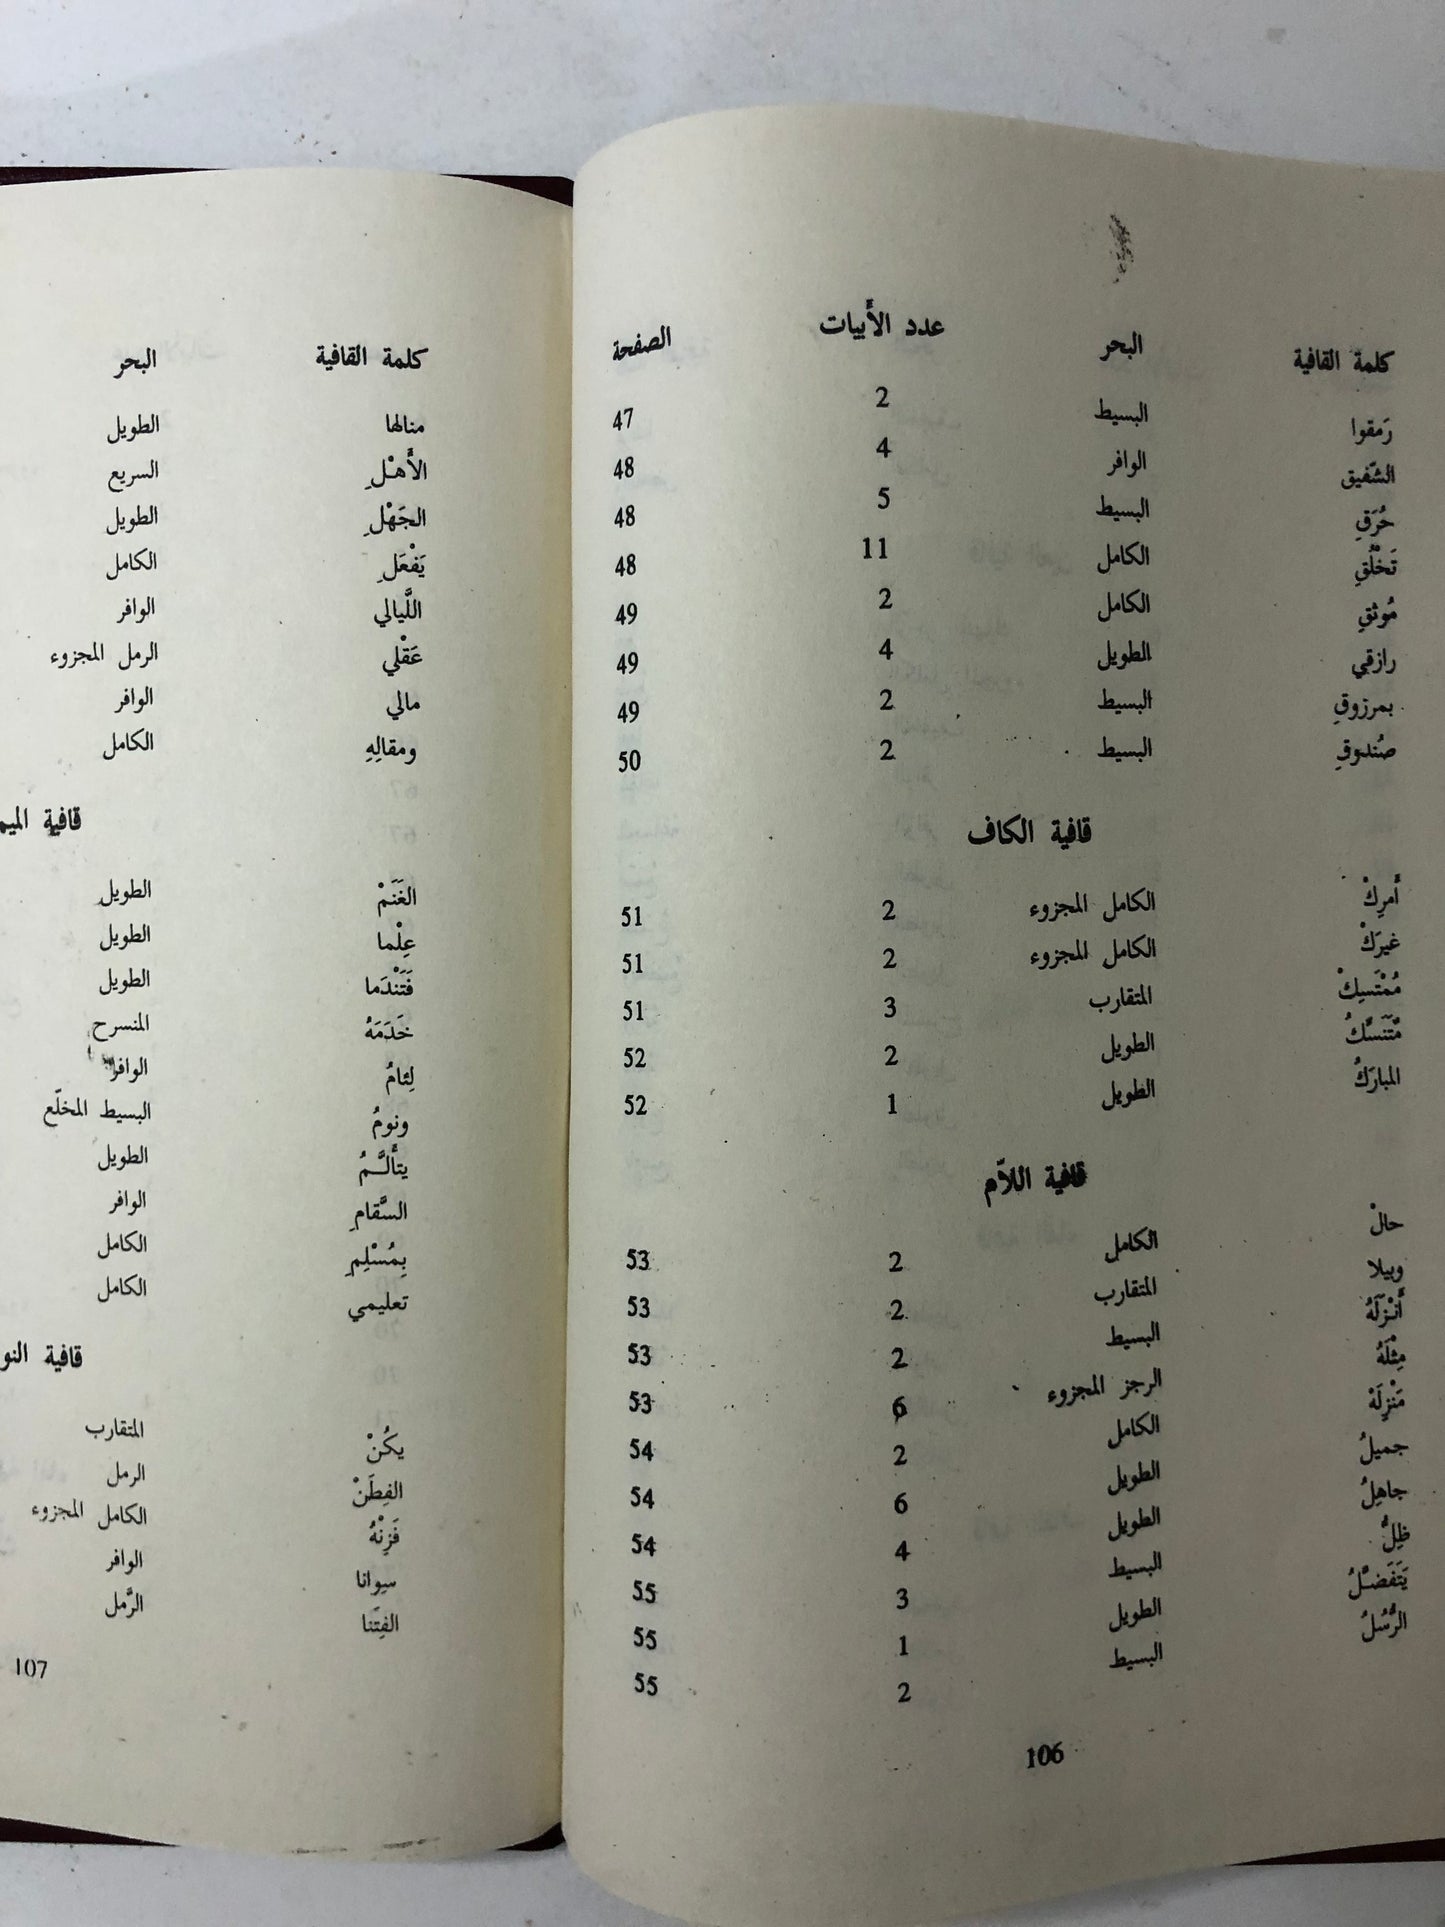 كلمة القافية البحر عدد الأبيات الصفحة
رَمقوا البسيط 2 47
الشّفيق الوافر 4 48
حُرَقِ البسيط 5 48
تَخْلُقِ الكامل 11 48
مُوثقِ الكامل 2 49
رازقي الطويل 4 49
بمرزوقِ البسيط 2 49
صُندوقِ البسيط 2 50
قافية الكاف
أَمرِكْ الكامل المجزوء 2 51
غيرَكْ الكامل المجزوء 2 51
مُمْتَسِكْ المتقارب 3 51
مُتَنَسِّكُ الطويل 2 52
المبارَكُ الطويل 1 52
قافية اللاّم
حالْ الكامل 2 53
وبيلا المتقارب 2 53
أَنْزَلَهُ البسيط 2 53
مِثْلَهُ الرجز المجزوء 6 53
مَنْزِلَهْ الكامل 2 54
جميلُ الطويل 6 54
جاهِلُ الطويل 4 54
ظِلُّ البسيط 3 55
يَتَفَضَّلُ الطويل 1 55
الرُّسُلُ البسيط 2 55
106
كلمة القافية البحر
منالها الطويل
الأَهْلِ السريع
الجَهْلِ الطويل
يَفْعَلِ الكامل
اللَّيالي الوافر
عَقْلي الرمل المجزوء
مالي الوافر
ومقالِهِ الكامل
قافية الميم
الغَنَمْ الطويل
عِلْما الطويل
فَتَنْدَما الطويل
خَدَمَهُ المنسرح
لِئامُ الوافر
ونومُ البسيط المخلّع
يتأَلَّمُ الطويل
السَّقامِ الوافر
بِمُسْلِمِ الكامل
تعليمي الكامل
قافية النو
يكُنْ المتقارب
الفِطَنْ الرمل
فَزِنْهُ الكامل المجزوء
سيوانا الوافر
الفِتَنا الرَّمل
107